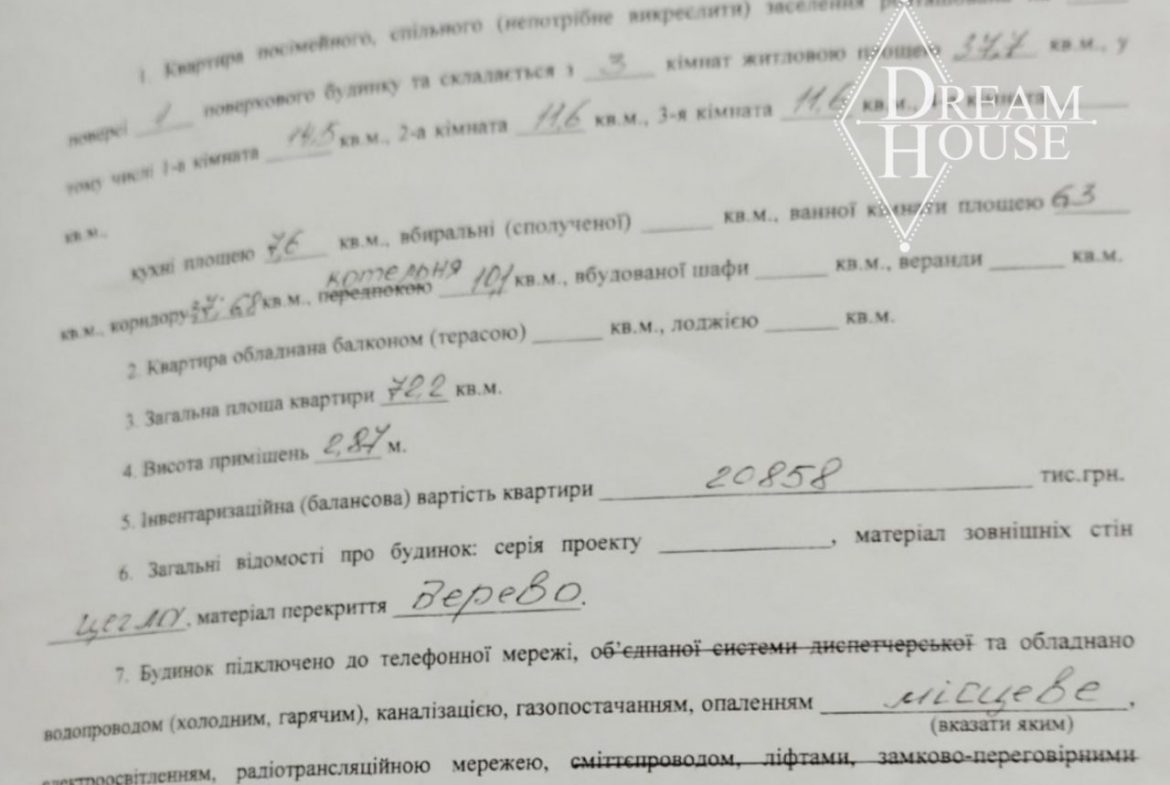 1. Квартира посімейного, спільного (непотрібне викреслити) заселення розташована на
поверсі 1 поверхового будинку та складається з 3 кімнат житловою площею 37,7 кв.м., у
тому числі 1-а кімната 14,5 кв.м., 2-а кімната 11,6 кв.м., 3-я кімната 11,6 кв.м., кімната
кв.м.,
кухні площею 7,6 кв.м., вбиральні (сполученої) кв.м., ванної кімнати площею 6.3
котельня
кв.м., коридору кв.м., передпокою 10,1 кв.м., вбудованої шафи кв.м., веранди кв.м.
2. Квартира обладнана балконом (терасою) кв.м., лоджією кв.м.
3. Загальна площа квартири 72,2 кв.м.
4. Висота приміщень 2,87 м.
5. Інвентаризаційна (балансова) вартість квартири 20858 тис.грн.
6. Загальні відомості про будинок: серія проекту , матеріал зовнішніх стін
матеріал перекриття Дерево.
7. Будинок підключено до телефонної мережі, об'єднаної системи диспетчерської та обладнано
водопроводом (холодним, гарячим), каналізацією, газопостачанням, опаленням місцеве,
(вказати яким)
електроосвітленням, радіотрансляційною мережею, сміттєпроводом, ліфтами, замково-переговірними
DREAM
HOUSE